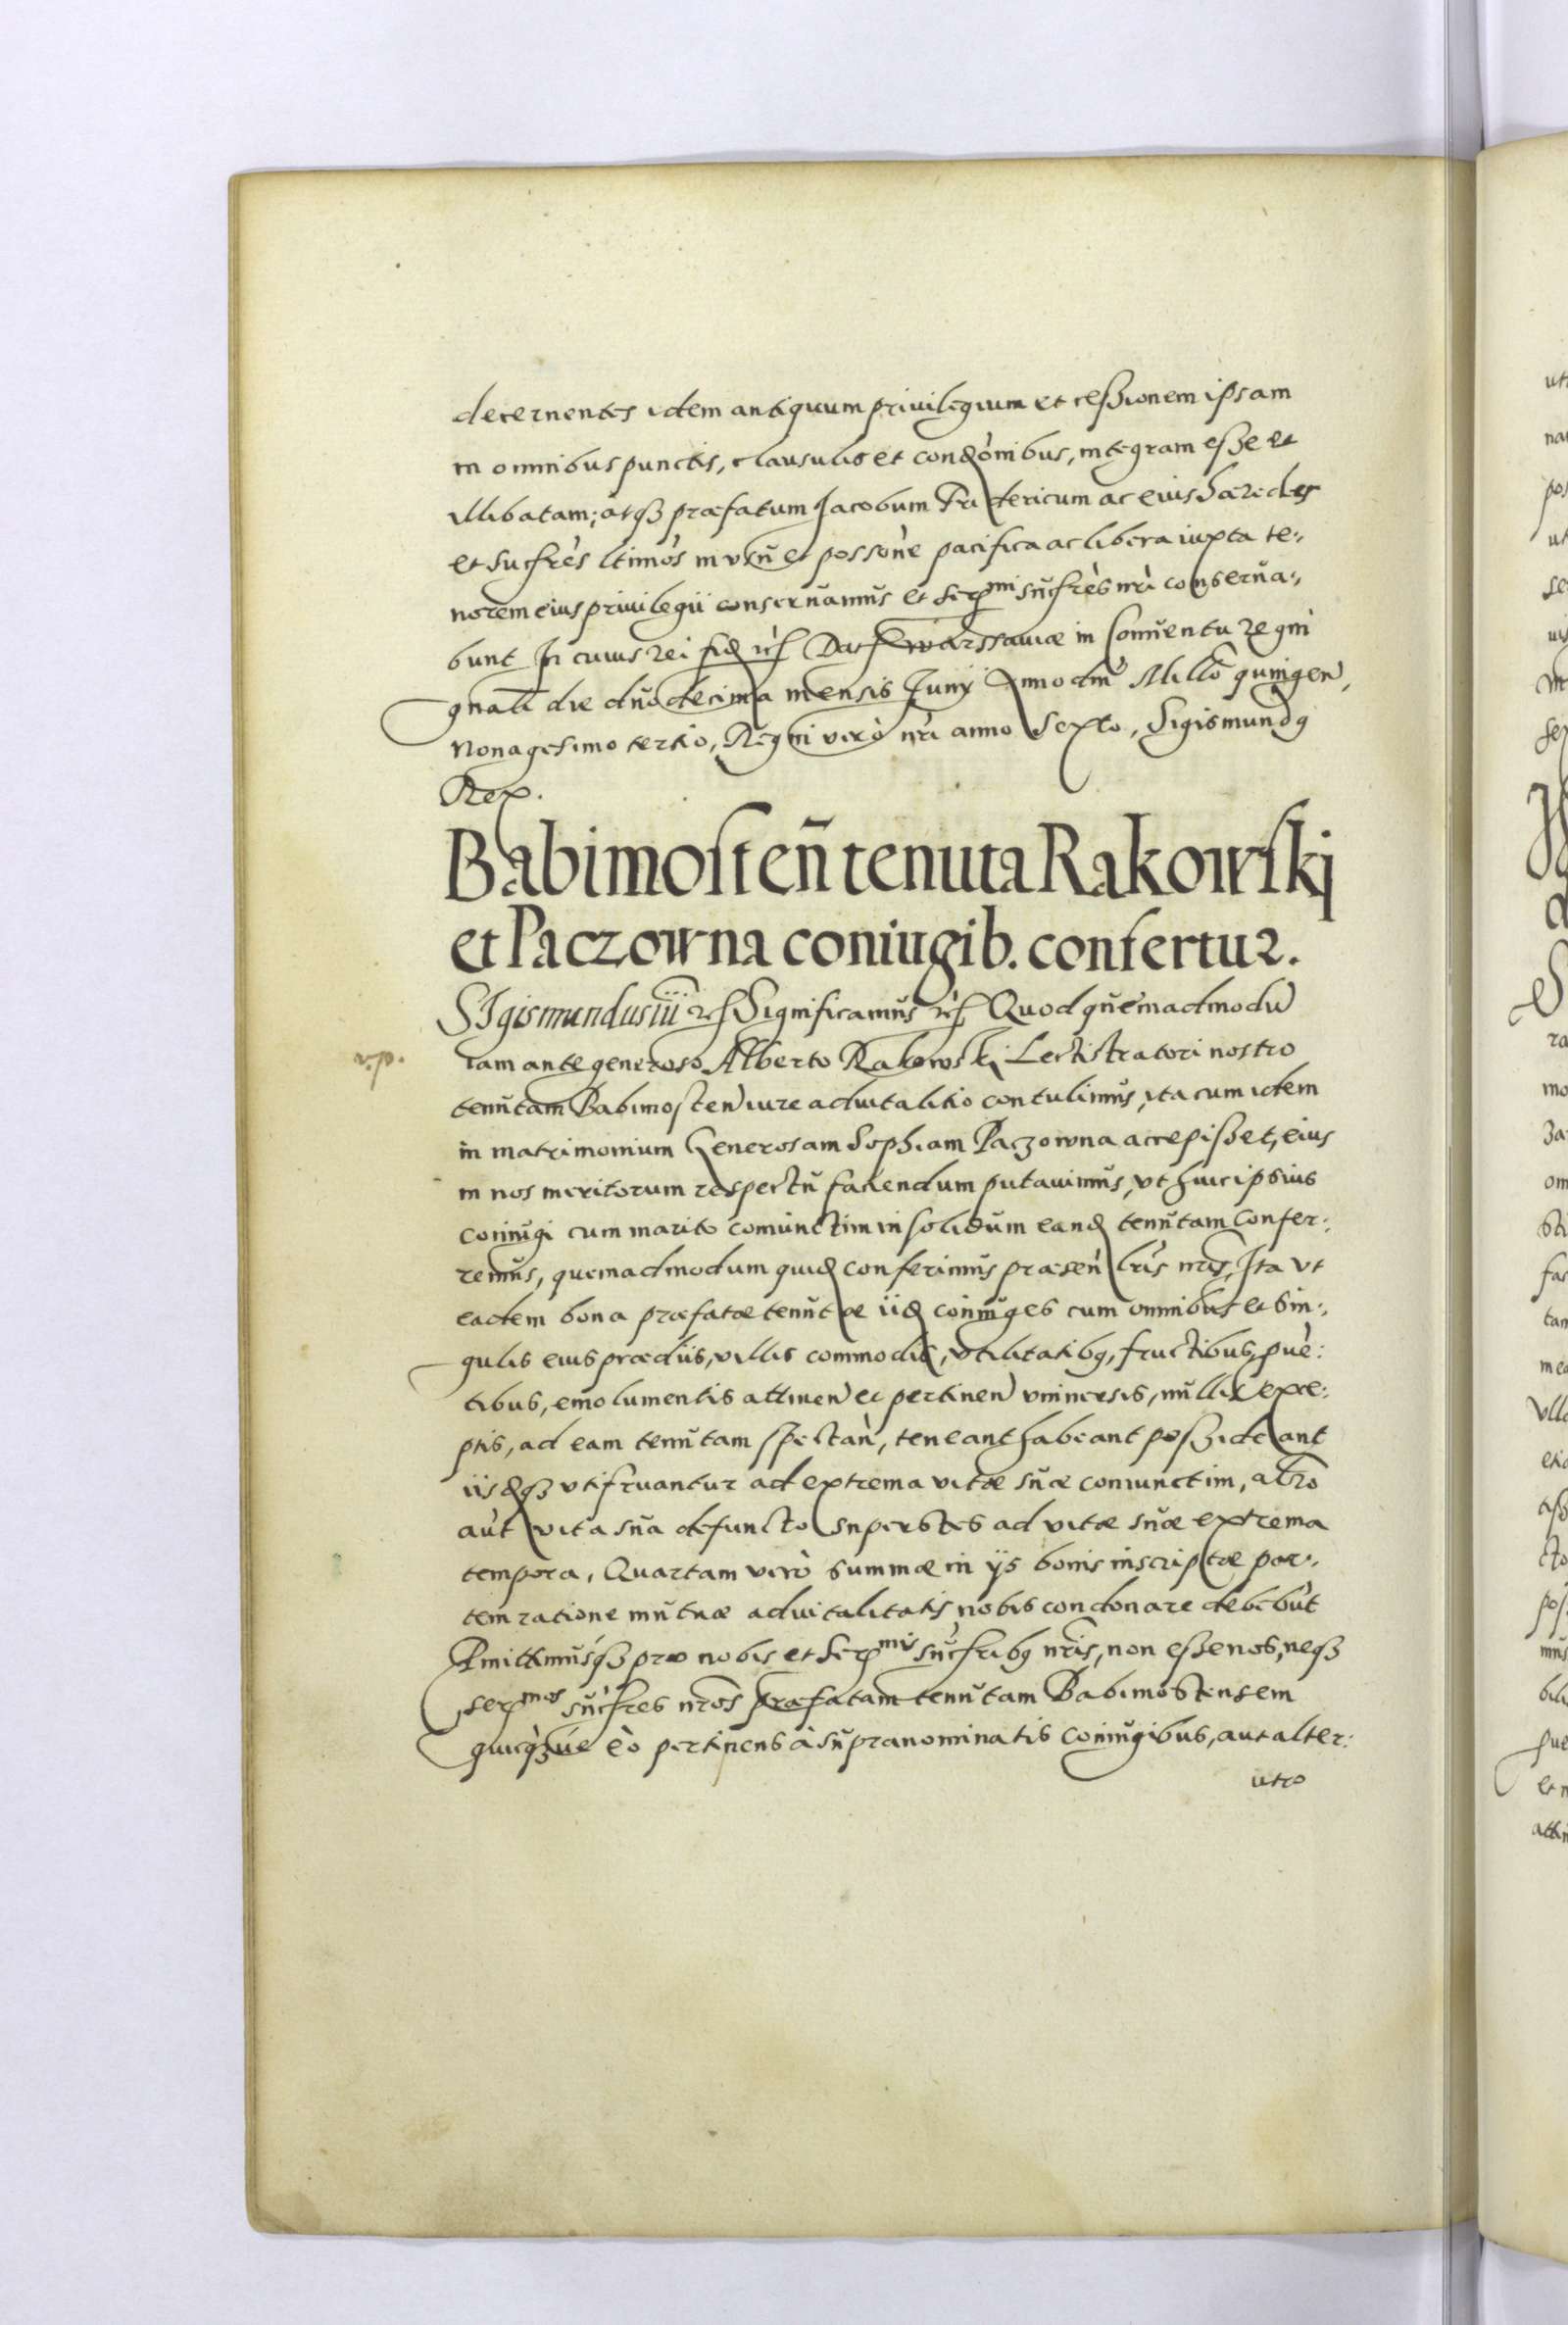 decernentes idem antiquum priuilegium et cessionem ipsam
in omnibus punctis, clausulis et condònibus, integram esse et
illibatam; atqꝫ præfatum Jacobum Fridericum ac eius hæredes
et sucfrès ltimòs in vsu et possòne pacifica ac libera iuxta te:
norem eius priuilegii conseruamus et Serᵐⁱ sucfrès nrì conserua:
bunt In cuius rei fid etc Dat Warssauiæ in Conuentu regni
gnali die duodecima mensis Junij Anno dni Millo quingen,
Nonagesimo tertio, Regni verò nri anno Sexto, Sigismundꝰ
Rex.
Babimosten̄ tenuta Rakowskj
et Paczowna coniugib. confertur.
SIgismundus iii etc Significamus etc Quod quemadmodu
v.p.
iam ante generoso Alberto Rakowski Lectistratori nostro
tenutam Babimosten iure aduitalitio contulimus, ita cum idem
in matrimonium Generosam Sophiam Paczowna accepisset, eius
in nos meritorum respectu faciendum putauimus, vt huic ipsius
coniugi cum marito coniunctim in solidum eand tenutam Confer:
remus, quemadmodum quid conferimus præsen lris nris, Ita vt
eadem bona præfatæ tenutæ iid coniuges cum omnibus et sin:
gulis eius prædiis, villis commodis, vtilitatibꝰ, fructibus, puè:
tibus, emolumentis attinen et pertinen vniuersis, nullis exce:
ptis, ad eam tenutam spectan, teneant habeant possideant
iisdqꝫ vtifruantur ad extrema vitæ suæ coniunctim, altro
aut vita sua defuncto superstes ad vitæ suæ extrema
tempora, Quartam verò summæ in ijs bonis inscriptæ par:
tem ratione mutuæ aduitalitatis nobis condonare debebut
Pmittimusqꝫ pro nobis et Serᵐⁱˢ sucfribꝰ nris, non esse nos, neqꝫ
serᵐᵒˢ sucfres nros præfatam tenutam Babimostensem
quicqꝫue eò pertinens à supranominatis coniugibus, aut alter:
utro